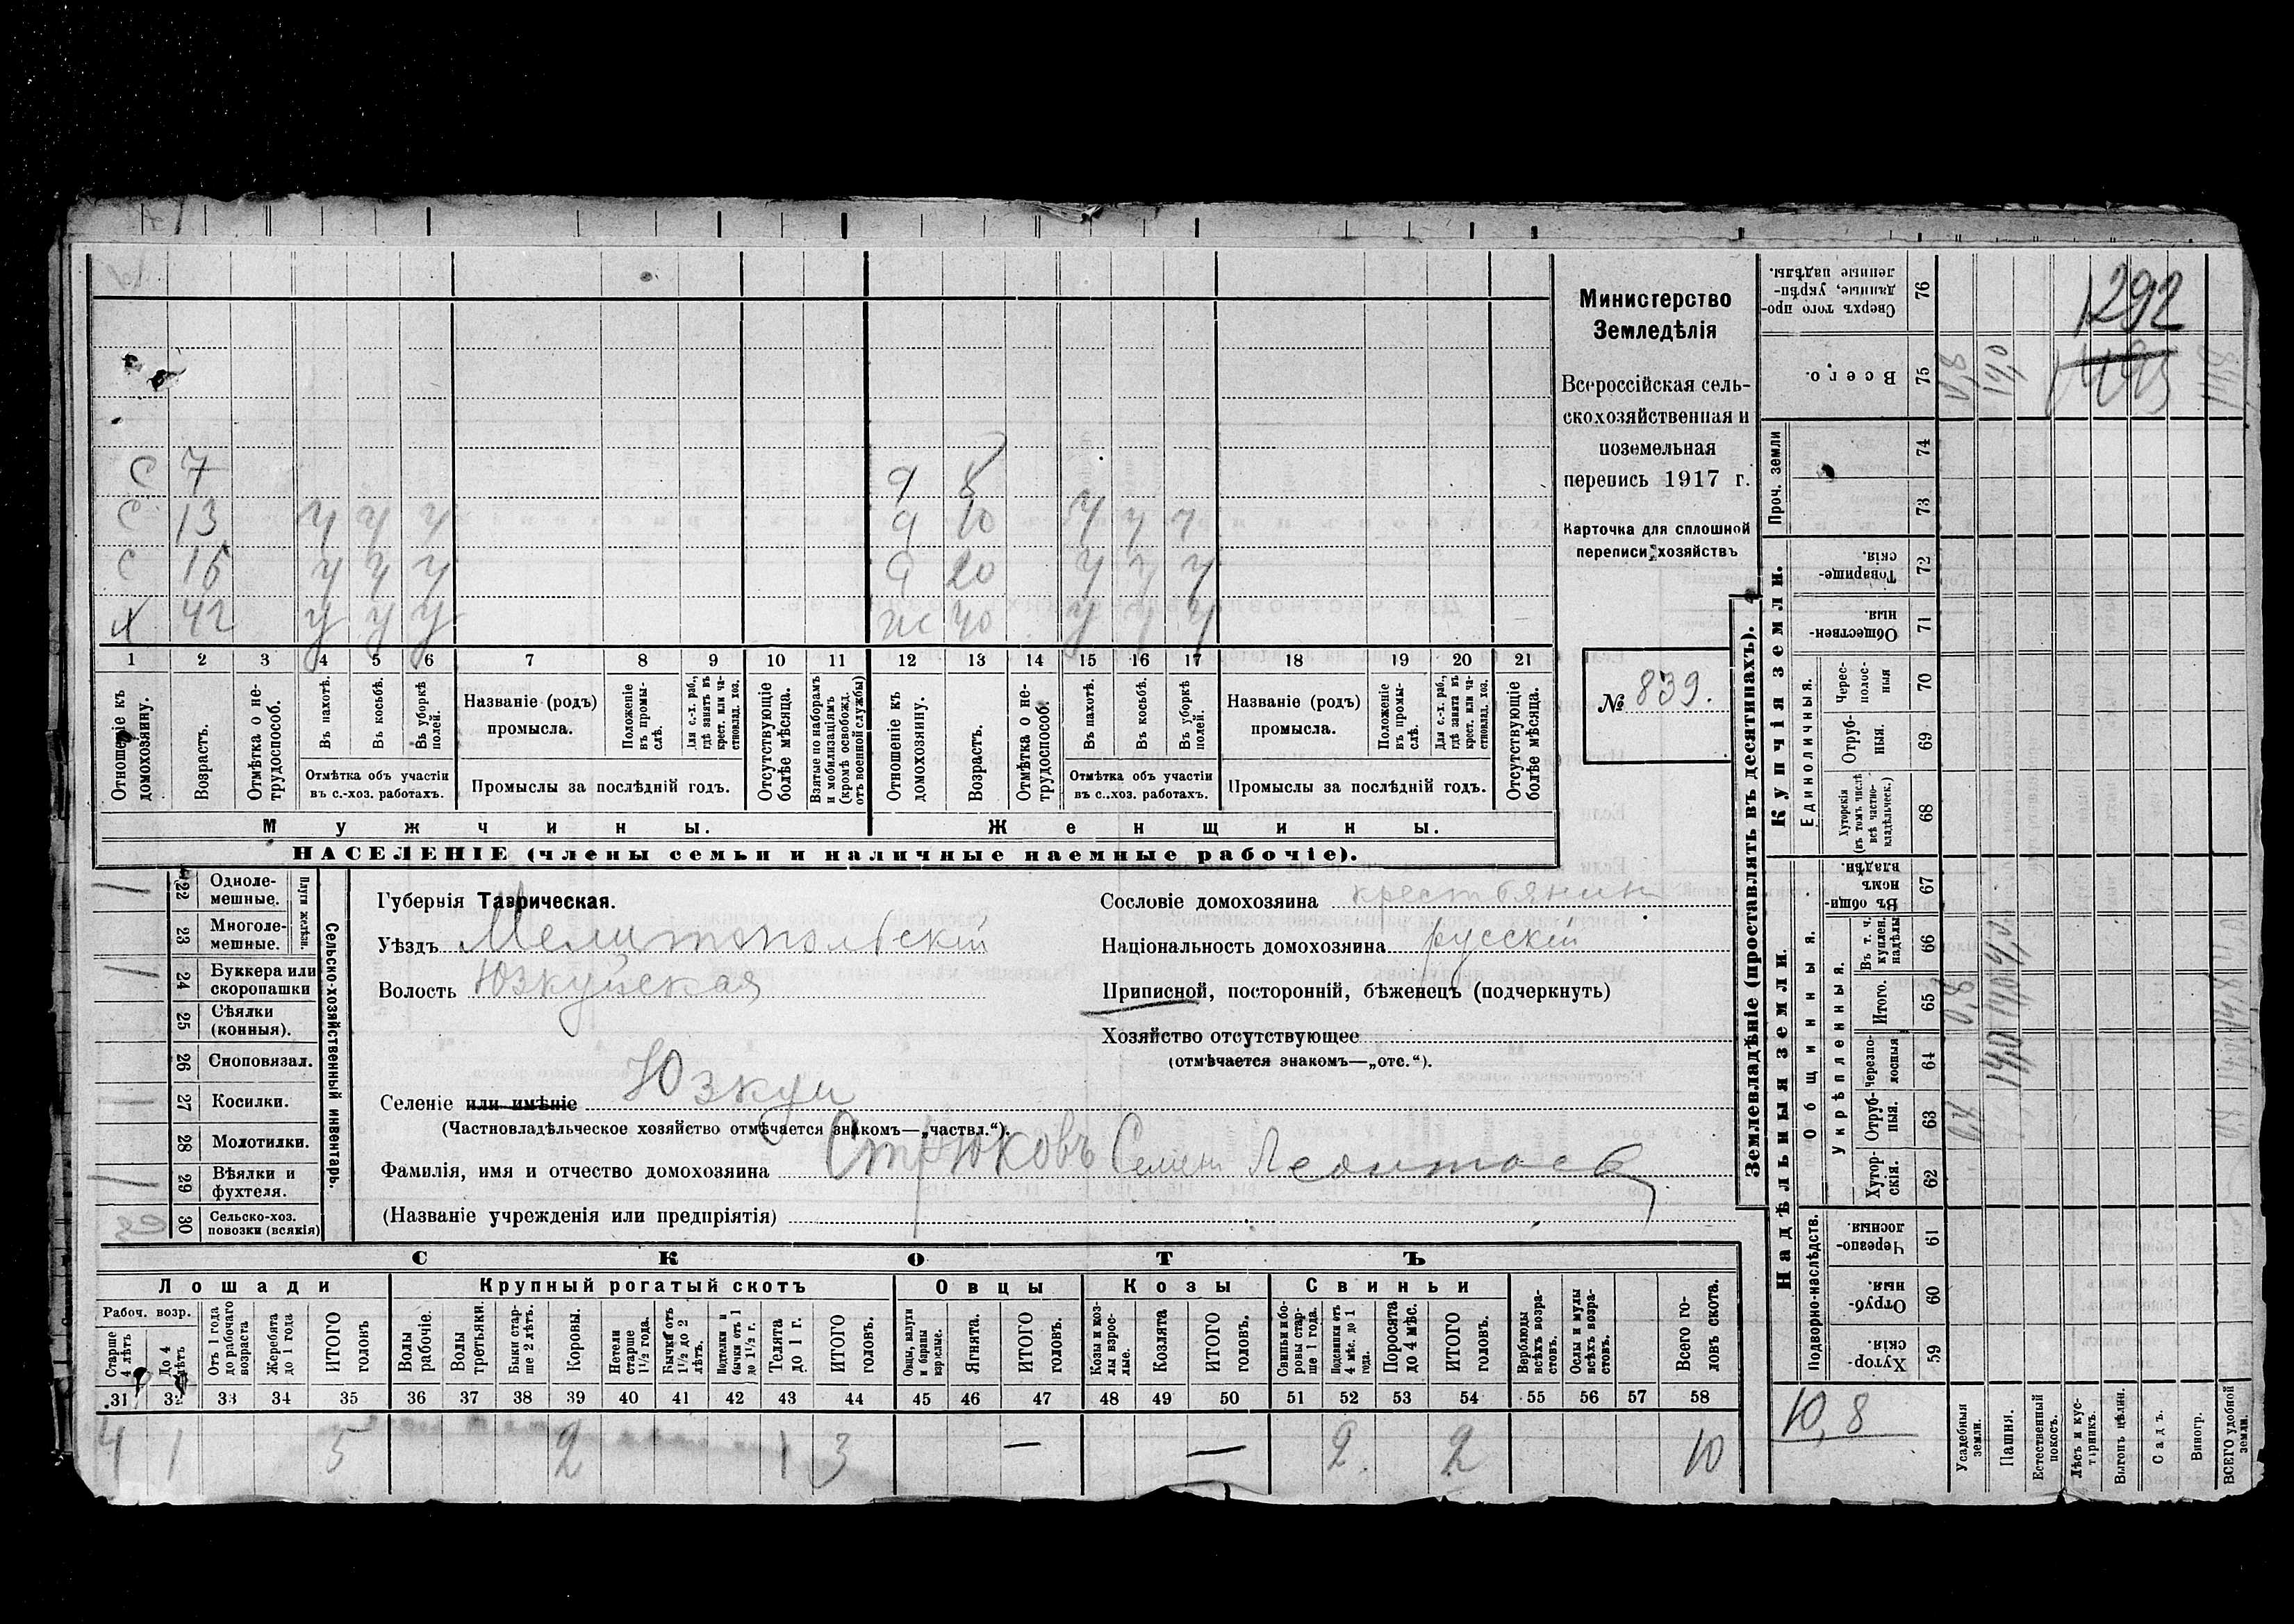 Министерство
Земледѣлія
Всероссійская сель-
скохозяйственная и
поземельная
перепись 1917 г.
Карточка для сплошной
переписи хозяйствъ
№ 839.
с 7
с 13 у у у
с 16 у у у
х 42 у у у
д 8
д 10 у у у
д 20 у у у
ж 40 у у у
1 2 3 4 5 6 7 8 9 10 11 12 13 14 15 16 17 18 19 20 21
Отношеніе къ домохозяину.
Возрастъ.
Отмѣтка о не-трудоспособ.
Въ пахотѣ.
Въ косьбѣ.
Въ уборкѣ полей.
Отмѣтка объ участіи въ с.-хоз. работахъ.
Названіе (родъ) промысла.
Положеніе въ промы-слѣ.
Для с.-х. раб., гдѣ занятъ въ крест. или ча-стновлад. хоз.
Промыслы за послѣдній годъ.
Отсутствующіе болѣе мѣсяца.
Взятые по наборамъ и мобилизаціямъ (кромѣ освобожд. отъ военной службы)
Отношеніе къ домохозяину.
Возрастъ.
Отмѣтка о не-трудоспособ.
Въ пахотѣ.
Въ косьбѣ.
Въ уборкѣ полей.
Отмѣтка объ участіи въ с.-хоз. работахъ.
Названіе (родъ) промысла.
Положеніе въ промы-слѣ.
Для с.-х. раб., гдѣ занята въ крест. или ча-стновлад. хоз.
Промыслы за послѣдній годъ.
Отсутствующіе болѣе мѣсяца.
Мужчины.
Женщины.
НАСЕЛЕНІЕ (члены семьи и наличные наемные рабочіе).
Сельско-хозяйственный инвентарь.
Плуги желѣзн.
22 Одноле-мешные. 1
23 Многоле-мешные.
24 Буккера или скоропашки 1
25 Сѣялки (конныя).
26 Сноповязал.
27 Косилки. 1
28 Молотилки.
29 Вѣялки и фухтеля. 1
30 Сельско-хоз. повозки (всякія)
Губернія Таврическая.
Уѣздъ Мелитопольскій
Волость Юзкуйская
Сословіе домохозяина крестьянин
Національность домохозяина русскій
Приписной, посторонній, бѣженецъ (подчеркнуть)
Хозяйство отсутствующее
(отмѣчается знакомъ—„отс.“).
Селеніе или имѣніе Юзкуи
(Частновладѣльческое хозяйство отмѣчается знакомъ—„частвл.“).
Фамилія, имя и отчество домохозяина Стрюковъ Семен Леонтьев
(Названіе учрежденія или предпріятія)
СКОТЪ
Лошади
Крупный рогатый скотъ
Овцы
Козы
Свиньи
Рабоч. возр.
Старше 4 лѣтъ
До 4 лѣтъ
Отъ 1 года до рабочаго возраста
Жеребята до 1 года
ИТОГО головъ
Волы рабочіе.
Волы третьяки.
Быки стар-ше 2 лѣтъ.
Коровы.
Нетели старше 1½ года.
Бычки отъ 1½ до 2 лѣтъ.
Подтелки и бычки отъ 1 до 1½ г.
Телята до 1 г.
ИТОГО головъ.
Овцы, валухи и бараны взрослые.
Ягнята.
ИТОГО головъ.
Козы и коз-лы взрос-лые.
Козлята
ИТОГО головъ.
Свиньи и бо-ровы стар-ше 1 года.
Подсвинки отъ 4 мѣс. до 1 года.
Поросята до 4 мѣс.
ИТОГО головъ.
Верблюды всѣхъ возра-стовъ.
Ослы и мулы всѣхъ возра-стовъ.
Всего го-ловъ скота.
31 32 33 34 35 36 37 38 39 40 41 42 43 44 45 46 47 48 49 50 51 52 53 54 55 56 57 58
4 1 5 2 1 3 — — 2 2 10
Землевладѣніе (проставлять въ десятинахъ).
Надѣльныя земли.
Купчія земли.
Проч. земли
Подворно-наслѣдств.
Общинныя.
Укрѣпленныя.
Единоличныя.
Хутор-скія. 59
Отруб-ныя. 60
Черезпо-лосныя. 61
Хутор-скія. 62
Отруб-ныя. 63
Черезпо-лосныя 64
Итого. 65
Въ т. ч. куплен. надѣлы 66
Въ общи-номъ владѣн. 67
Хуторскія (въ томъ числѣ всѣ частно-владѣльческ.) 68
Отруб-ныя. 69
Черес-полос-ныя 70
Обществен-ныя 71
Товарище-скія. 72
73
74
Всего. 75
Сверхъ того про-данные, укрѣп-ленные надѣлы. 76
Усадебныя земли.
Пашня.
Естественный покосъ.
Лѣсъ и кус-тарникъ.
Выгонъ цѣлин.
Садъ.
Виногр.
ВСЕГО удобной земли.
10,8
0,8
14,0
14,0
14,8
0,8
14,0
14,8
1292